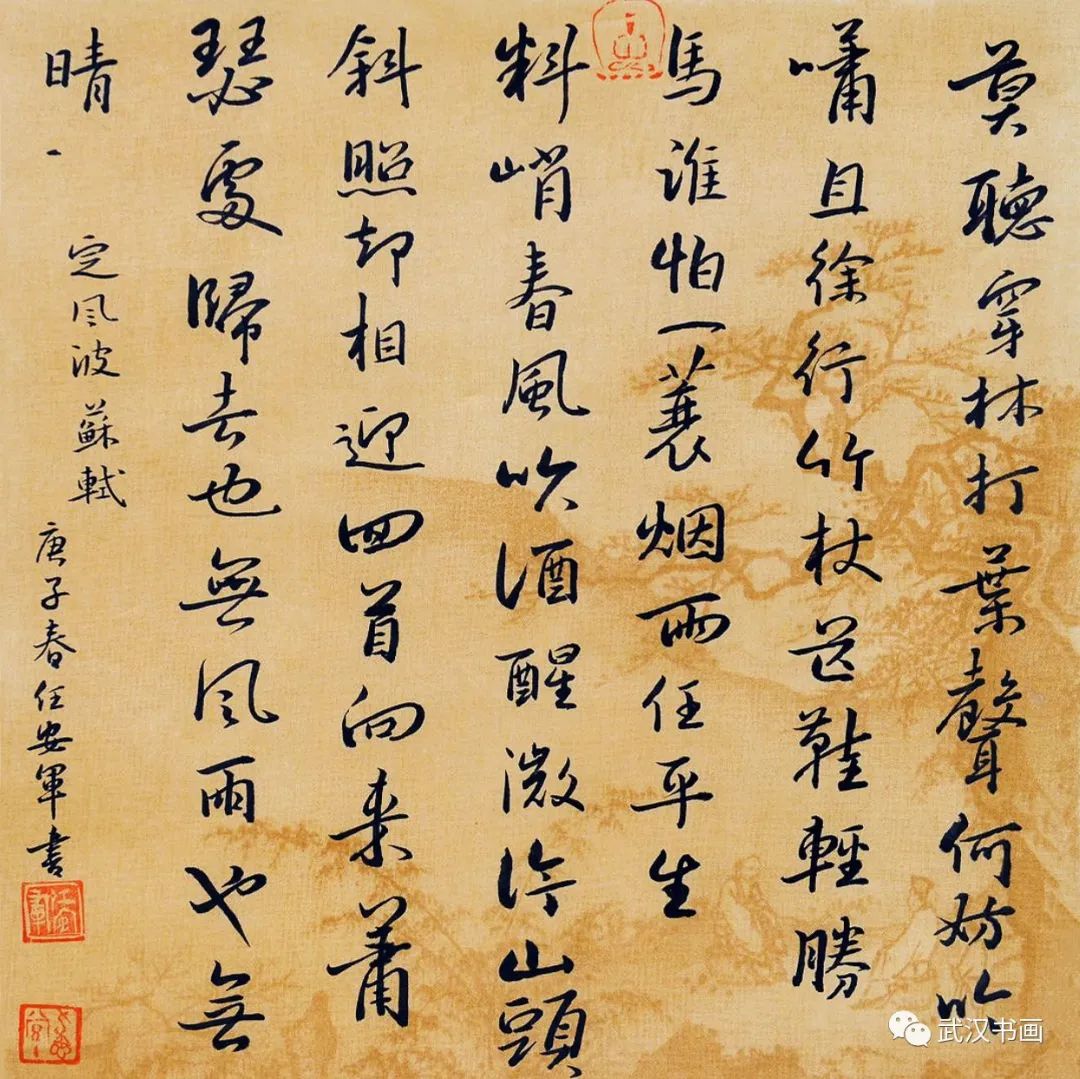 莫聽穿林打葉聲何妨吟
嘯且徐行竹杖芒鞋輕勝
馬誰怕一蓑烟雨任平生
料峭春風吹酒醒微冷山頭
斜照却相迎回首向来蕭
瑟處歸去也無風雨也無
晴
定风波 蘇軾
庚子春任安軍书
武汉书画